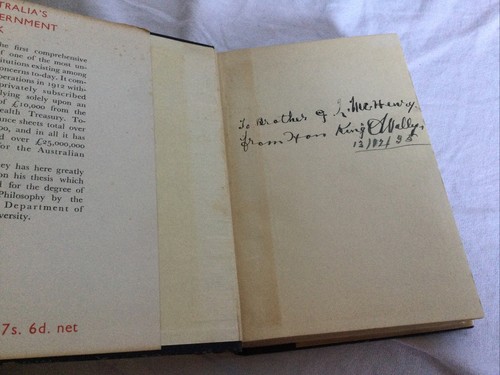 TRALIA'S
ERNMENT
K
he first comprehensive
of one of the most un-
titutions existing among
concerns to-day. It com-
perations in 1912 with-
privately subscribed
lying solely upon an
of £10,000 from the
ealth Treasury. To-
nce sheets total over
00, and in all it has
d over £25,000,000
for the Australian
ey has here greatly
on his thesis which
d for the degree of
Philosophy by the
Department of
iversity.
7s. 6d. net
To Brother McHenry
from Hon King